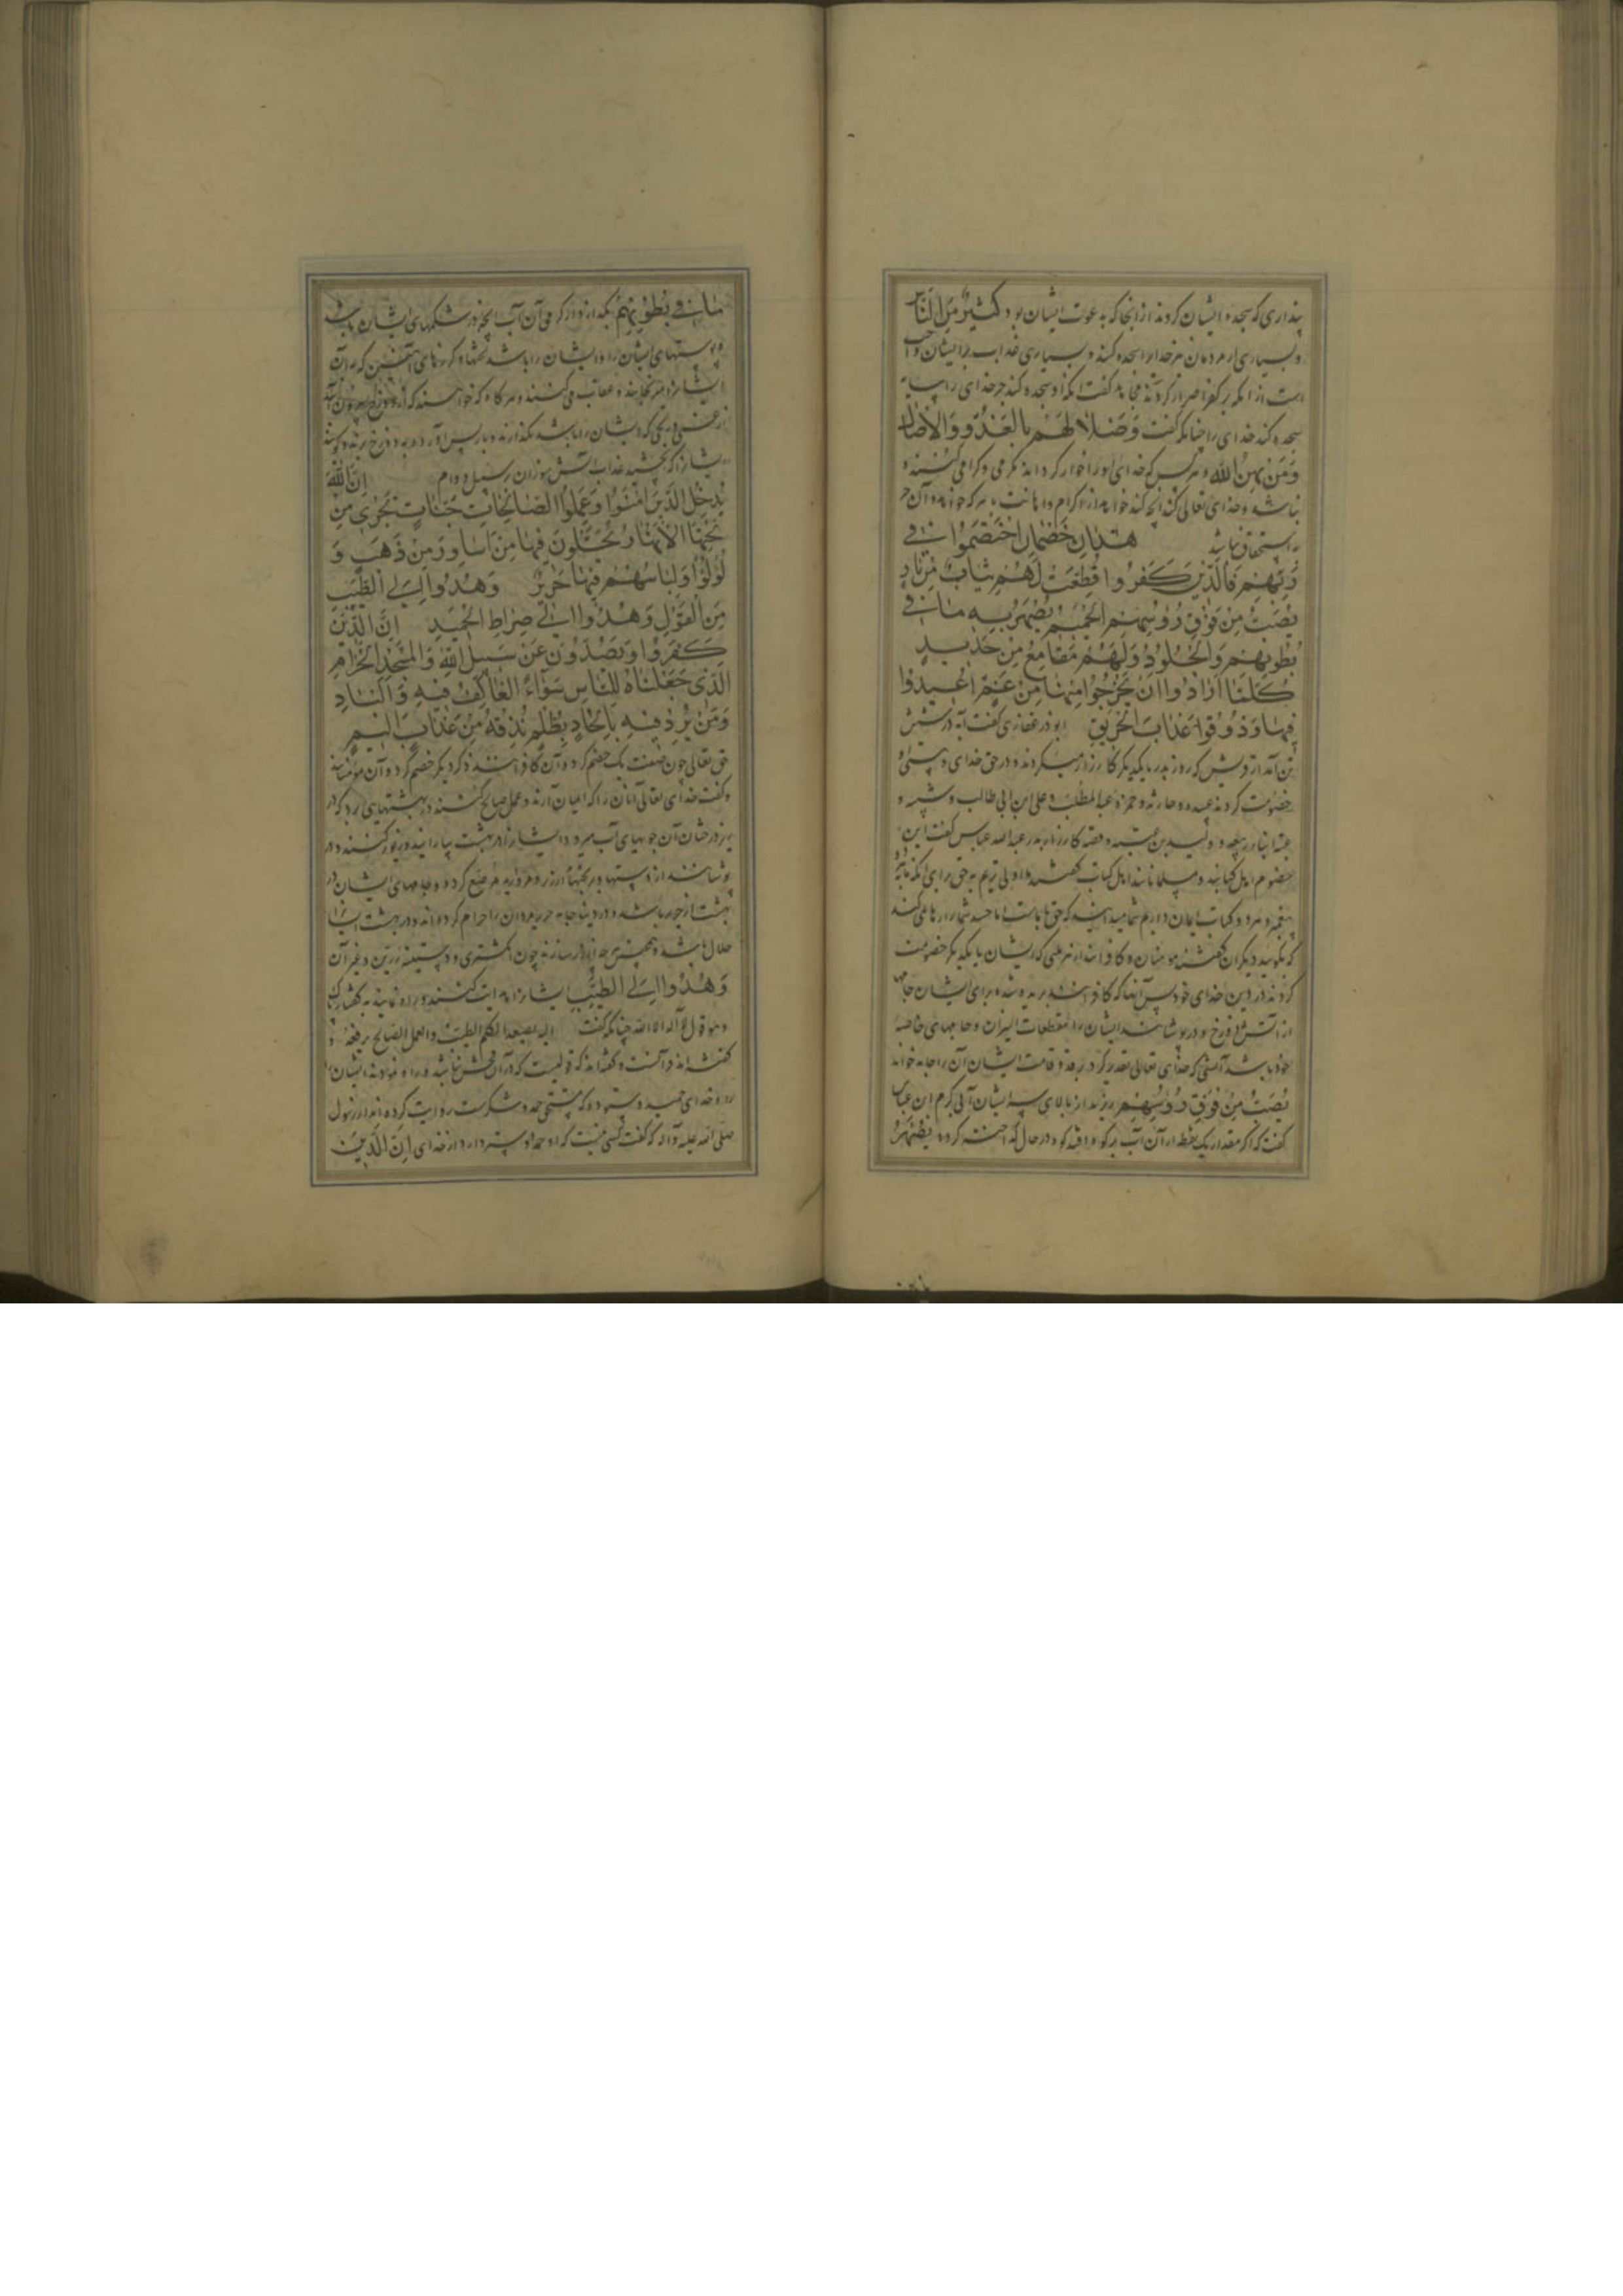 پنداری که سجده ایشان کردند از انجا که به عوت ایشان بود كَثيرٌ مِنَ النَّاسِ
و بسیاری از مردمان مر خدایرا سجده کنند و بسیاری عذاب بر ایشان واجب
است از انکه بر کفر اصرار کردند مجاهد گفت
سجده کند خدای را چنانکه گفت وَظِلَالُهُمْ بِالْغُدُوِّ وَالْآصَالِ
وَمَنْ يُهِنِ اللَّهُ و هر کس که خدای او را خوار کرداند مکرمی و کرامی کننده
نباشد و خدای تعالی کند انچه کند خواهد از اکرام و اهانت با هر که خواهد و آن جز
به استحقاق نباشد هٰذَانِ خَصْمَانِ اخْتَصَمُوا فِي
رَبِّهِمْ فَالَّذِينَ كَفَرُوا قُطِّعَتْ لَهُمْ ثِيَابٌ مِنْ نَارٍ
يُصَبُّ مِنْ فَوْقِ رُؤُسِهِمُ الْحَمِيمُ يُصْهَرُ بِهِ مَا فِي
بُطُونِهِمْ وَالْجُلُودُ وَلَهُمْ مَقَامِعُ مِنْ حَدِيدٍ
كُلَّمَا أَرَادُوا أَنْ يَخْرُجُوا مِنْهَا مِنْ غَمٍّ أُعِيدُوا
فِيهَا وَذُوقُوا عَذَابَ الْحَرِيقِ ابوذر غفاری گفت آیه در شش
تن آمد از قریش که روز بدر با یکدیگر کارزار میکردند و در حق خدای
خصومت کردند عبیده و حارثه و حمزه عبدالمطلب و علی ابن ابی طالب و شیبه و
عتبه ابنا ربیعه و ولید بن عتبه و قصه کارزار بدر عبدالله عباس گفت این
خصوم اهل کتابند و مسلمانانند اهل کتاب گفتند ما اولی تریم به حق برای انکه ما به
پیغمبر و هر دو کتاب ایمان داریم شما میدانید که حق با ماست اما حسد شما را رها نمی کند
که بگویید دیگران گفتند مومنان و کافرانند از هر ملتی که ایشان با یکدیگر خصومت
کردند در دین خدای خود پس آنها که کافر شدند بریده شده برای ایشان جامها
از آتش دوزخ و در پوشانند ایشان را مقطعات النیران و جامهای خاصه
خود باشد آتشی که خدای تعالی تقدیر کرد بر قد و قامت ایشان آن را جامه خواند
يُصَبُّ مِنْ فَوْقِ رُؤُسِهِمُ ریزند از بالای سر ایشان آبی گرم ابن عباس
گفت که اگر مقدار یک قطره از آن آب بر کوه افتد کوه در حال گداخته گردد يُصْهَرُ
مَا فِي بُطُونِهِمْ بگدازد از گرمی آن آب انچه در شکمهای ایشان باشد
و پوستهای ایشان را و ایشان را باشد لختها و کرزهای آهنین که بدان
ایشانرا میرنجانند و عقاب می کنند و هر گاه که خواهند که از دوزخ بیرون آیند
از غمی و رنجی که ایشان را باشد نگذارند و باز پس آورده به دوزخ برند و گویند
ایشانرا که بچشید عذاب آتش سوزان بر سبیل دوام إِنَّ اللَّهَ
يُدْخِلُ الَّذِينَ آمَنُوا وَعَمِلُوا الصَّالِحَاتِ جَنَّاتٍ تَجْرِي مِنْ
تَحْتِهَا الْأَنْهَارُ يُحَلَّوْنَ فِيهَا مِنْ أَسَاوِرَ مِنْ ذَهَبٍ وَ
لُؤْلُؤًا وَلِبَاسُهُمْ فِيهَا حَرِيرٌ وَهُدُوا إِلَى الطَّيِّبِ
مِنَ الْقَوْلِ وَهُدُوا إِلَى صِرَاطِ الْحَمِيدِ إِنَّ الَّذِينَ
كَفَرُوا وَيَصُدُّونَ عَنْ سَبِيلِ اللَّهِ وَالْمَسْجِدِ الْحَرَامِ
الَّذِي جَعَلْنَاهُ لِلنَّاسِ سَوَاءً الْعَاكِفُ فِيهِ وَالْبَادِ
وَمَنْ يُرِدْ فِيهِ بِإِلْحَادٍ بِظُلْمٍ نُذِقْهُ مِنْ عَذَابٍ أَلِيمٍ
حق تعالی چون صفت یک خصم کرد و آن کافرانند ذکر دیگر خصم کرد و آن مؤمنانند
و گفت خدای تعالی آنان را که ایمان آرند و عمل صالح کنند در بهشتهایی برد که در
زیر درختان آن جویهای آب میرود و ایشانرا در بهشت بیارایند و زیور کنند و در
پوشانند از دستها و برنجنها از زر و مروارید مرصع کرده و جامهای ایشان در
بهشت از حریر باشد و در دنیا جامه حریر مردان را حرام کرده اند و در بهشت ایشانرا
حلال باشد و همچنین چون انگشتری و دستینه زرین و غیر آن
وَهُدُوا إِلَى الطَّيِّبِ ایشانرا هدایت کنند و راه نمایند به گفتار پاک
و هو قول لا اله الا الله چنانکه گفت الیه یصعد الکلم الطیب والعمل الصالح یرفعه و
گفته اند قرآنست و گفته اند که قولیست که در آن فحش نباشد و راه نمودند ایشان را
براه خدای حمید و ستوده که مستحق حمد و شکرست روایت کرده اند از رسول
صلی الله علیه و آله که گفت کسی نیست که او حمد دوستر دارد از خدای إِنَّ الَّذِينَ